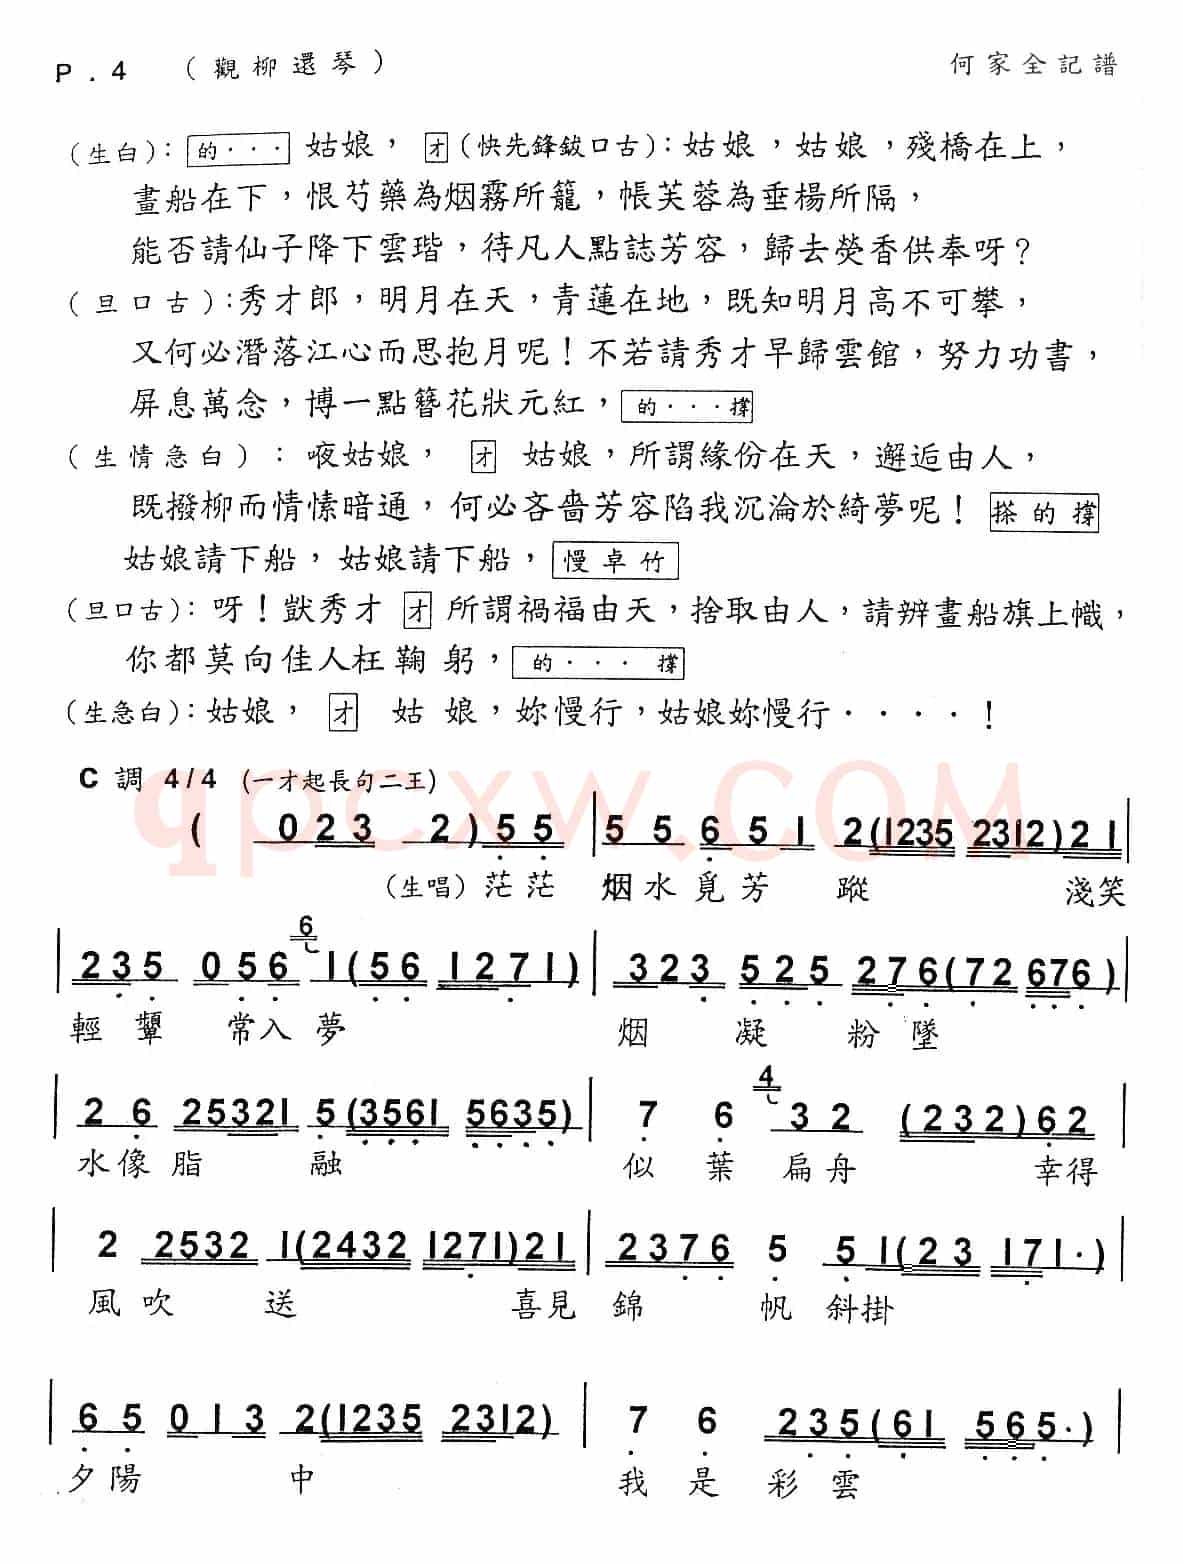 P . 4 （觀柳還琴） 何家全記譜
(生白): 的··· 姑娘， 才 (快先鋒鈸口古): 姑娘，姑娘，殘橋在上，
畫船在下，恨芍藥為烟霧所籠，悵芙蓉為垂楊所隔，
能否請仙子降下雲瑎，待凡人點誌芳容，歸去熒香供奉呀？
(旦口古): 秀才郎，明月在天，青蓮在地，既知明月高不可攀，
又何必潛落江心而思抱月呢！不若請秀才早歸雲館，努力功書，
屏息萬念，博一點簪花狀元紅， 的···撑
(生情急白): 吔姑娘， 才 姑娘，所謂緣份在天，邂逅由人，
既撥柳而情愫暗通，何必吝嗇芳容陷我沉淪於綺夢呢！ 搽的撑
姑娘請下船，姑娘請下船， 慢卓竹
(旦口古): 呀！獃秀才 才 所謂禍福由天，捨取由人，請辨畫船旗上幟，
你都莫向佳人枉鞠躬， 的···撑
(生急白): 姑娘， 才 姑娘，妳慢行，姑娘妳慢行····！
C 調 4/4 (一才起長句二王)
( 0 2 3 2 ) 5 5 | 5 5 6 5 1 2 (1235 2312) 2 1 |
(生唱) 茫茫 烟水覓芳蹤 淺笑
6
| 2 3 5 0 5 6 1 (5 6 1 2 7 1) | 3 2 3 5 2 5 2 7 6 (7 2 6 7 6) |
輕顰 常入夢 烟凝粉墜
4
| 2 6 2 5 3 2 1 5 (3561 5635) | 7 6 3 2 (2 3 2) 6 2 |
水像脂融 似葉扁舟 幸得
| 2 2532 1 (2432 1271) 2 1 | 2 3 7 6 5 5 1 (2 3 1 7 1·) |
風吹送 喜見錦帆斜掛
| 6 5 0 1 3 2 (1235 2312) | 7 6 2 3 5 (6 1 5 6 5·) |
夕陽中 我是彩雲
qpcxw.COM